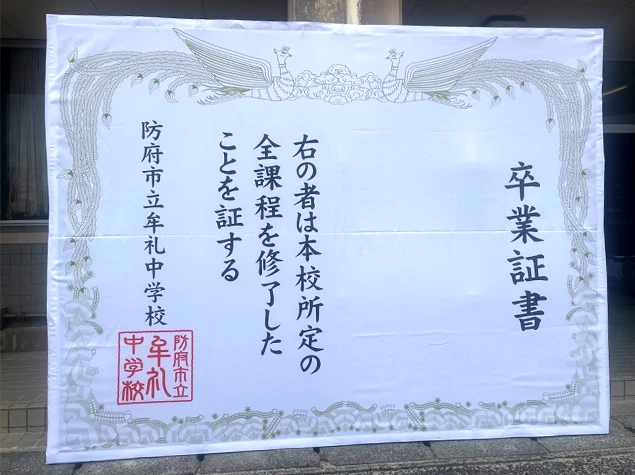 卒業証書
右の者は本校所定の
全課程を修了した
ことを証する
防府市立牟礼中学校
防府市立
牟礼
中学校